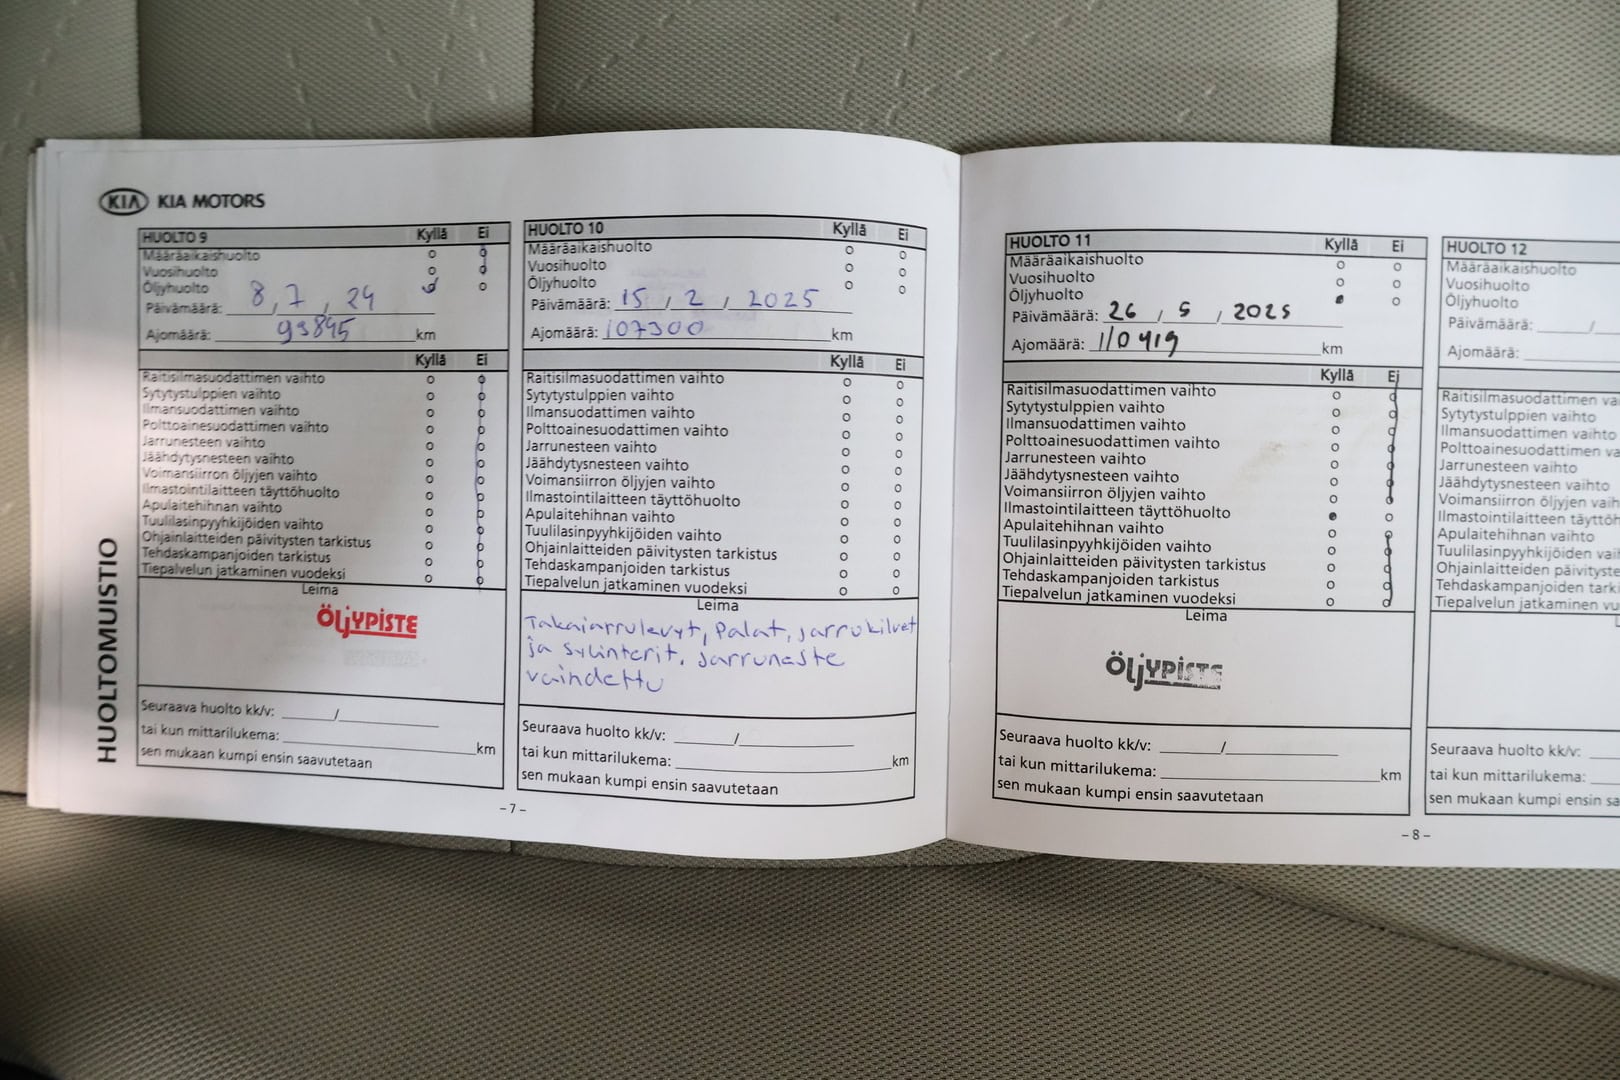 KIA KIA MOTORS
HUOLTOMUISTIO
HUOLTO 9 Kyllä Ei
Määräaikaishuolto
Vuosihuolto
Öljyhuolto
Päivämäärä: 8, 7, 24
Ajomäärä: 99845 km
Kyllä Ei
Raitisilmasuodattimen vaihto
Sytytystulppien vaihto
Ilmansuodattimen vaihto
Polttoainesuodattimen vaihto
Jarrunesteen vaihto
Jäähdytysnesteen vaihto
Voimansiirron öljyjen vaihto
Ilmastointilaitteen täyttöhuolto
Apulaitehihnan vaihto
Tuulilasinpyyhkijöiden vaihto
Ohjainlaitteiden päivitysten tarkistus
Tehdaskampanjoiden tarkistus
Tiepalvelun jatkaminen vuodeksi
Leima
ÖLJYPISTE
Seuraava huolto kk/v: ______/__________
tai kun mittarilukema: __________ km
sen mukaan kumpi ensin saavutetaan
HUOLTO 10 Kyllä Ei
Määräaikaishuolto
Vuosihuolto
Öljyhuolto
Päivämäärä: 15 / 2 / 2025
Ajomäärä: 107300 km
Kyllä Ei
Raitisilmasuodattimen vaihto
Sytytystulppien vaihto
Ilmansuodattimen vaihto
Polttoainesuodattimen vaihto
Jarrunesteen vaihto
Jäähdytysnesteen vaihto
Voimansiirron öljyjen vaihto
Ilmastointilaitteen täyttöhuolto
Apulaitehihnan vaihto
Tuulilasinpyyhkijöiden vaihto
Ohjainlaitteiden päivitysten tarkistus
Tehdaskampanjoiden tarkistus
Tiepalvelun jatkaminen vuodeksi
Leima
Takajarrulevyt, Palat, jarrukilvet
ja sylinterit. Jarruneste
vaihdettu
Seuraava huolto kk/v: ______/__________
tai kun mittarilukema: __________ km
sen mukaan kumpi ensin saavutetaan
- 7 -
HUOLTO 11 Kyllä Ei
Määräaikaishuolto
Vuosihuolto
Öljyhuolto
Päivämäärä: 26 / 5 / 2025
Ajomäärä: 110419 km
Kyllä Ei
Raitisilmasuodattimen vaihto
Sytytystulppien vaihto
Ilmansuodattimen vaihto
Polttoainesuodattimen vaihto
Jarrunesteen vaihto
Jäähdytysnesteen vaihto
Voimansiirron öljyjen vaihto
Ilmastointilaitteen täyttöhuolto
Apulaitehihnan vaihto
Tuulilasinpyyhkijöiden vaihto
Ohjainlaitteiden päivitysten tarkistus
Tehdaskampanjoiden tarkistus
Tiepalvelun jatkaminen vuodeksi
Leima
ÖLJYPISTE
Seuraava huolto kk/v: ______/__________
tai kun mittarilukema: __________ km
sen mukaan kumpi ensin saavutetaan
- 8 -
HUOLTO 12
Määräaikaishuolto
Vuosihuolto
Öljyhuolto
Päivämäärä: ______/
Ajomäärä:
Raitisilmasuodattimen va
Sytytystulppien vaihto
Ilmansuodattimen vaihto
Polttoainesuodattimen va
Jarrunesteen vaihto
Jäähdytysnesteen vaihto
Voimansiirron öljyjen vaih
Ilmastointilaitteen täyttöh
Apulaitehihnan vaihto
Tuulilasinpyyhkijöiden vai
Ohjainlaitteiden päivityste
Tehdaskampanjoiden tark
Tiepalvelun jatkaminen vu
Seuraava huolto kk/v:
tai kun mittarilukema:
sen mukaan kumpi ensin sa